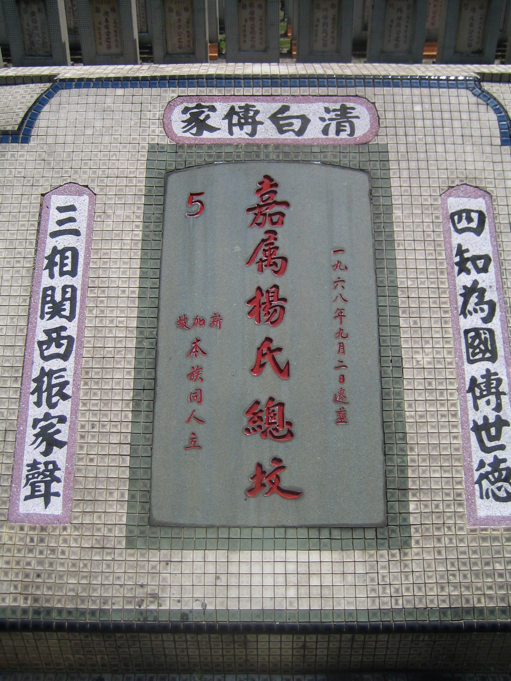 清白傳家
四知為國傳世德
一九六八年九月二日
嘉属楊氏總坟
5
新加坡
本族同人立
三相関西振家聲